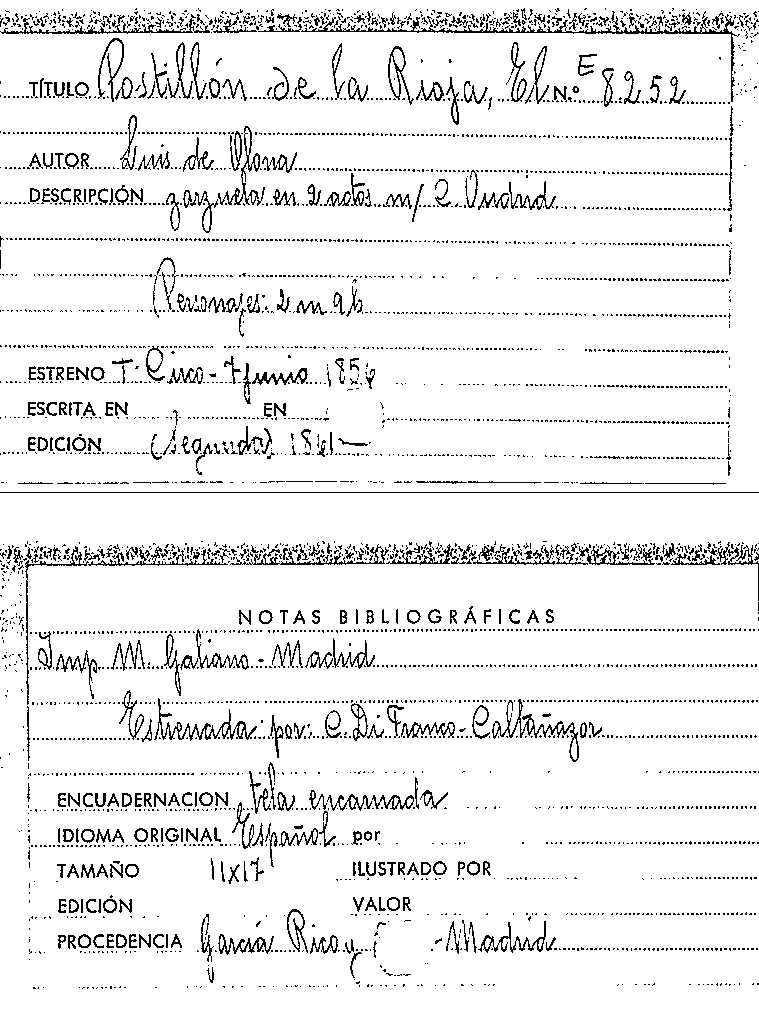 TÍTULO Postillón de la Rioja, El N.º E 8252
AUTOR Luis de Olona
DESCRIPCIÓN zarzuela en 2 actos m/ Oudrid
Personajes: 2 m 9 h
ESTRENO T. Circo - 7 junio 1856
ESCRITA EN EN
EDICIÓN (Segunda) 1861
NOTAS BIBLIOGRÁFICAS
Imp M. Galiano - Madrid
Estrenada por: C. Di Franco - Caltañazor
ENCUADERNACION tela encarnada
IDIOMA ORIGINAL Español por
TAMAÑO 11x17 ILUSTRADO POR
EDICIÓN VALOR
PROCEDENCIA García Rico y - Madrid